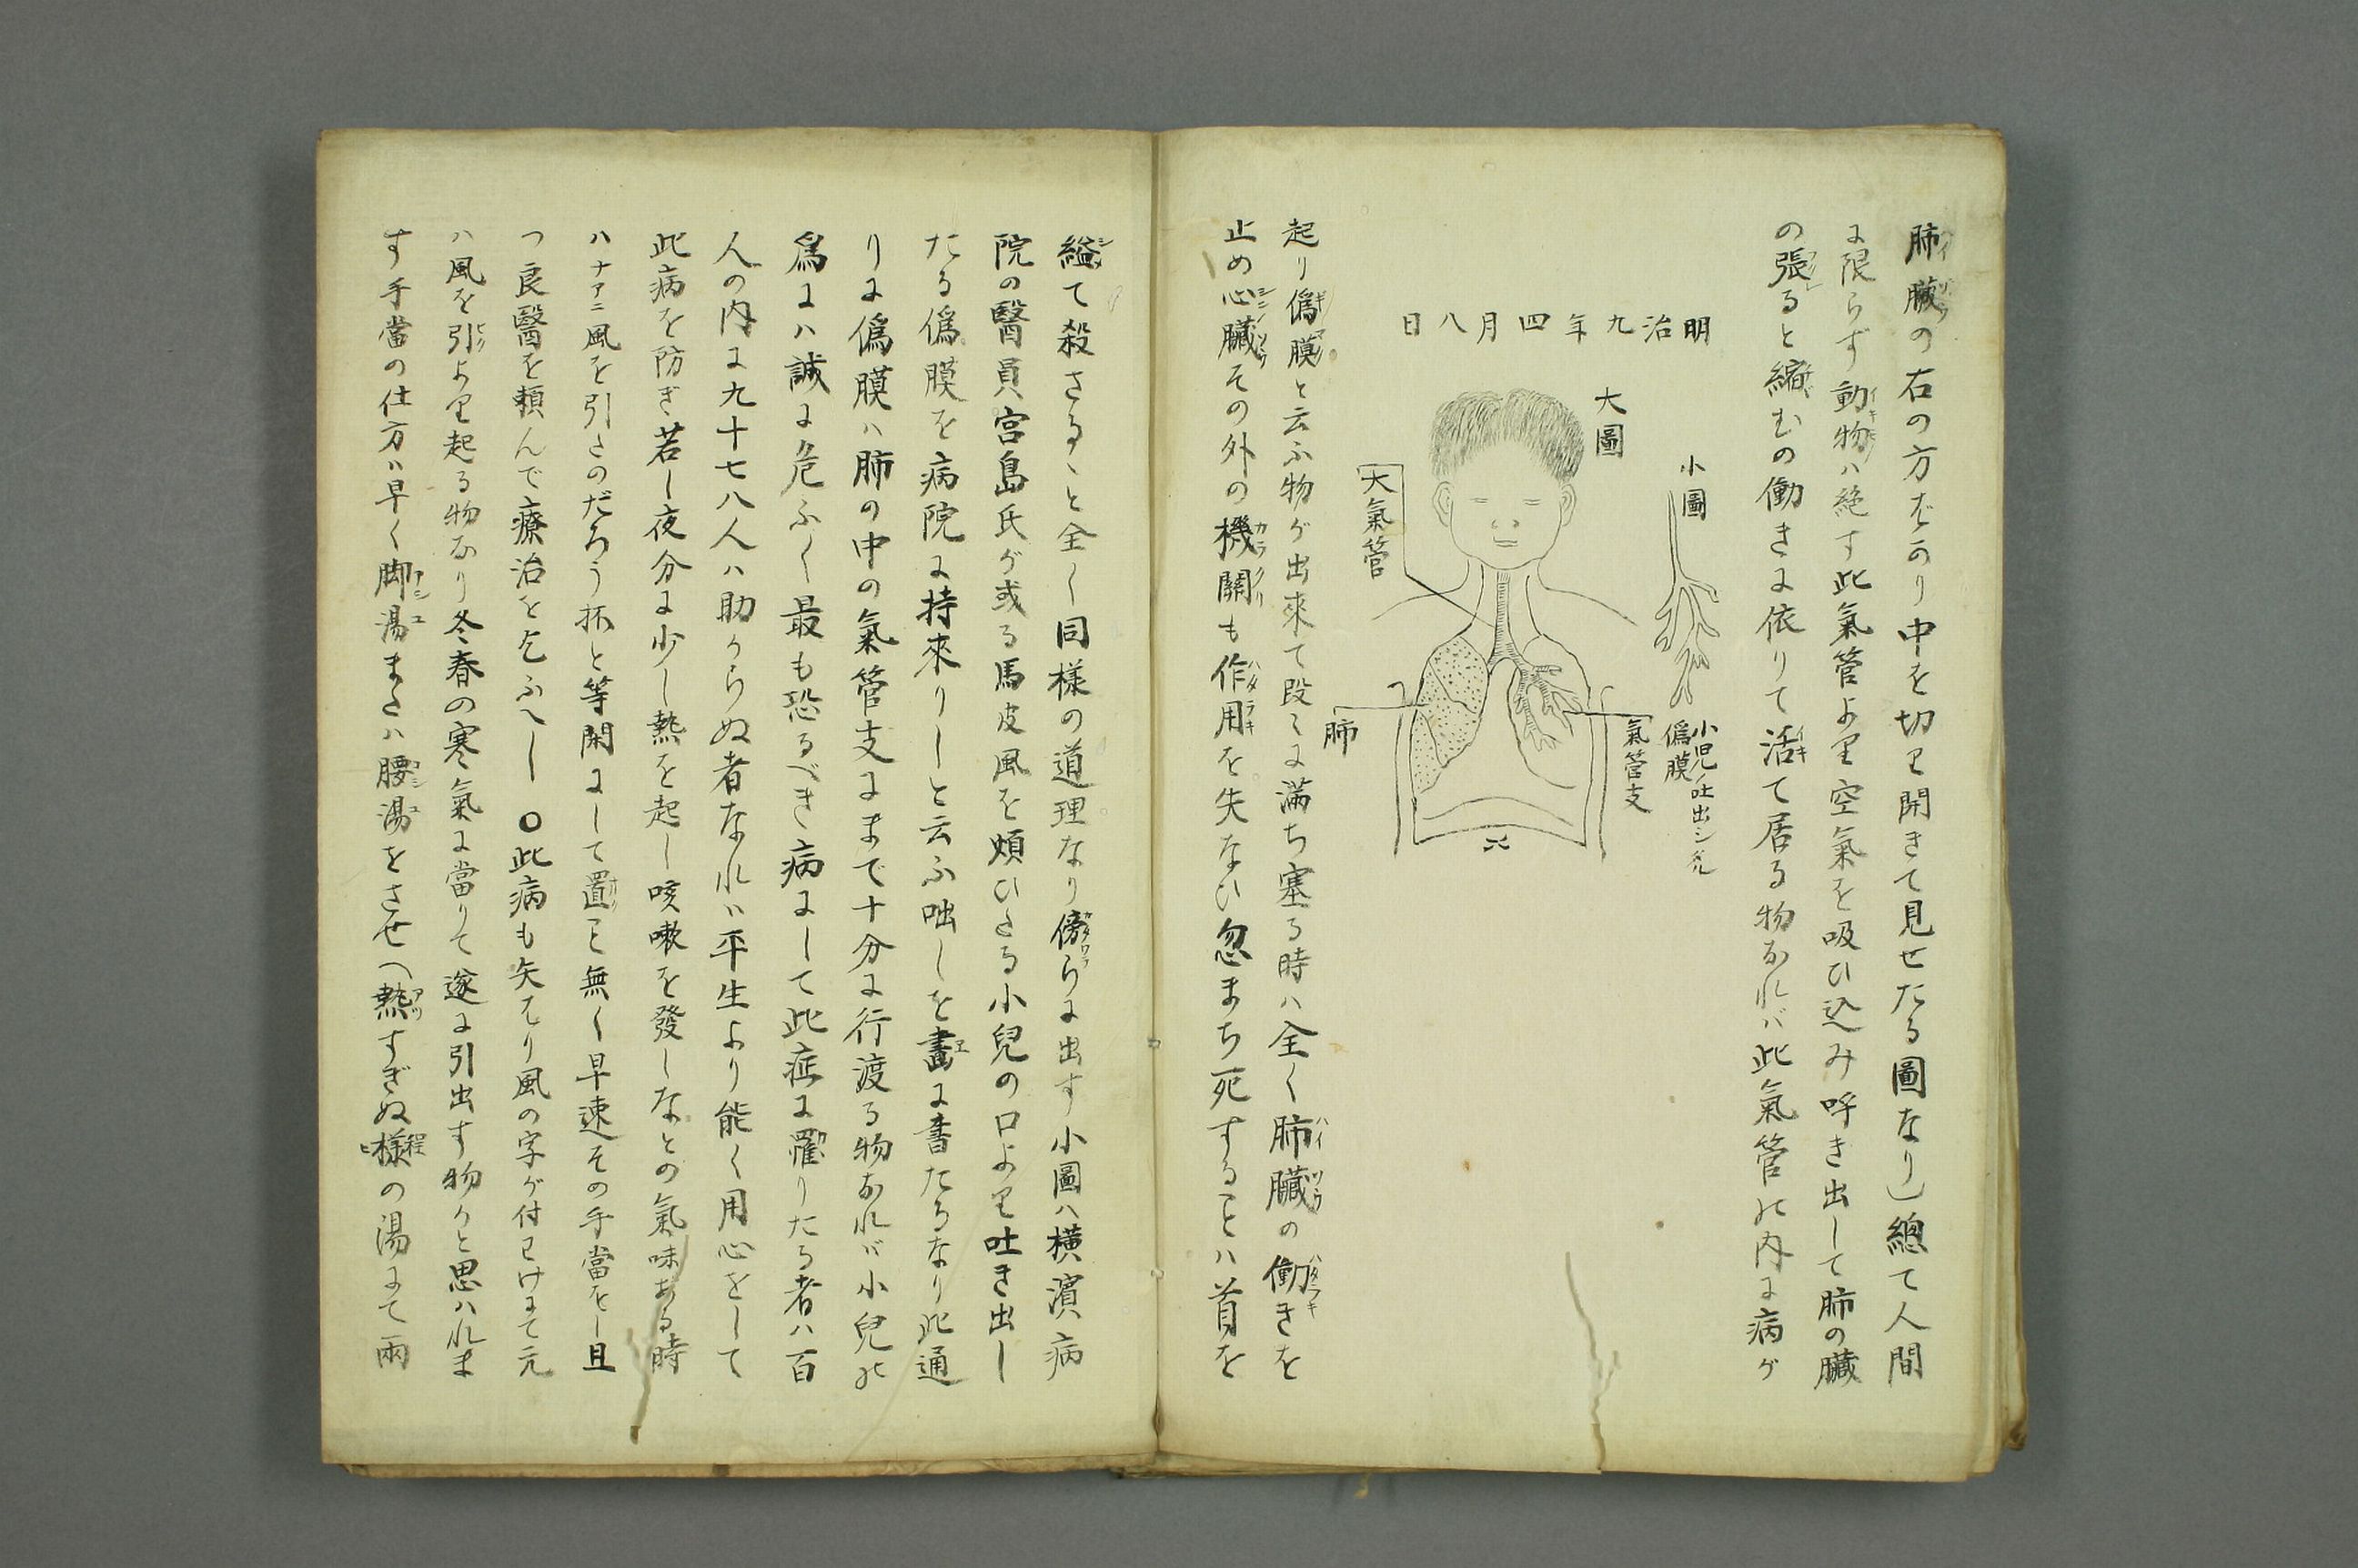 肺臓の右の方だのり中を切り開きて見せたる圖なり)總て人間
に限らず動物ハ絶す此氣管より空氣を吸ひ込み呼き出して肺の臓
の張ると縮むの働きに依りて活て居る物なれバ此氣管の内に病ガ
明治九年四月八日
小圖
小児ノ吐出シタル
偽膜
大圖
氣管支
大氣管
肺
起り偽膜と云ふ物ガ出來て段々に滿ち塞る時ハ全く肺臓の働きを
止め心臓その外の機關も作用を失なひ忽まち死することハ首を
縊て殺さるゝと全く同様の道理なり傍らに出す小圖ハ横濱病
院の醫員宮島氏ガ或る馬皮風を煩ひたる小兒の口より吐き出し
たる偽膜を病院に持來りしと云ふ咄しを畫に書たるなり此通
りに偽膜ハ肺の中の氣管支にまで十分に行渡る物なれバ小兒の
爲にハ誠に危ふく最も恐るべき病にして此症に罹りたる者ハ百
人の内に九十七八人ハ助からぬ者なれバ平生より能く用心をして
此病を防ぎ若し夜分に少し熱を起し咳嗽を發しなとの氣味ある時
ハナアニ風を引たのだろう抔と等閑にして置こと無く早速その手當をし且
つ良醫を頼んで療治を乞ふへし ○此病も矢はり風の字ガ付てけにて元
ハ風を引より起る物なり冬春の寒氣に當りて遂に引出す物かと思ハれま
す手當の仕方ハ早く脚湯またハ腰湯をさせ(熱すぎぬ様の湯にて兩